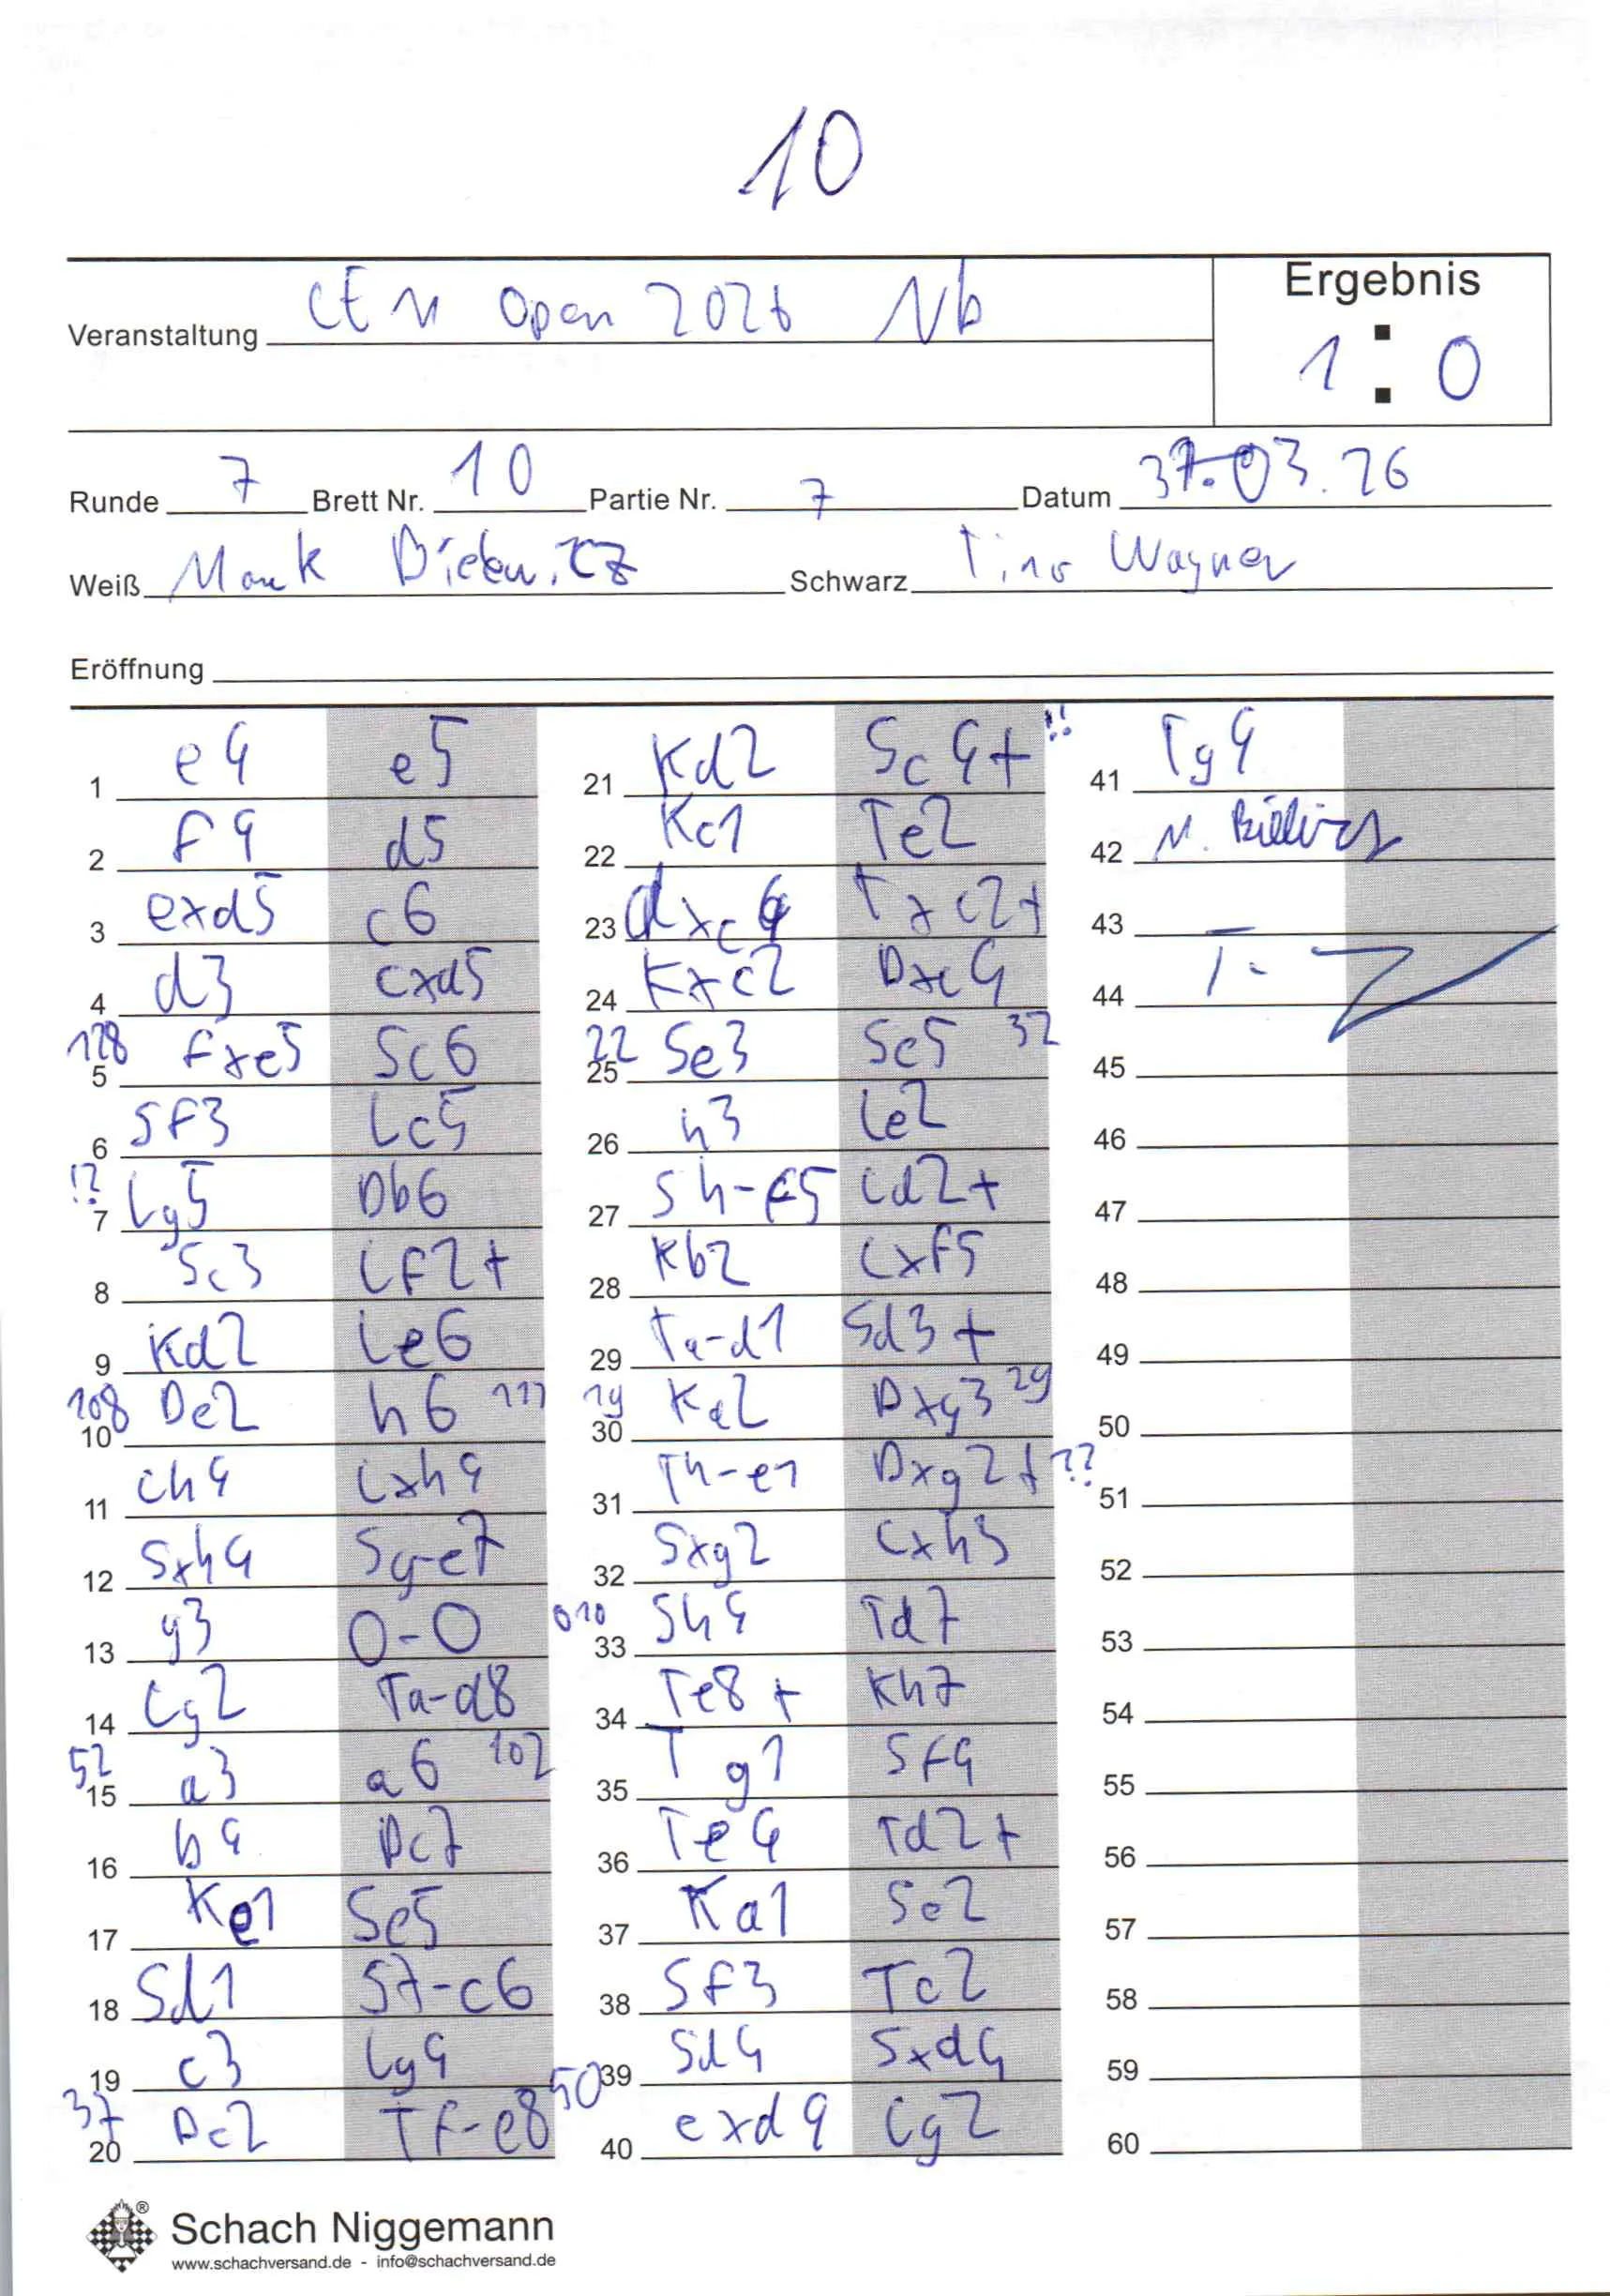 10
Veranstaltung CEM Open 2026 Nb
Ergebnis
1 : 0
Runde 7 Brett Nr. 10 Partie Nr. 7 Datum 03.26
Weiß Schwarz Tino Wagner
Eröffnung
1 e4 e5
2 f4 d5
3 exd5 c6
4 d3 cxd5
128 5 fxe5 Sc6
6 Sf3 Lc5
!? 7 Lg5 Db6
8 Sc3 Lf2+
9 Kd2 Le6
108 10 De2 h6 111
11 Lh4 Lxh4
12 Sxh4 Sg-e7
13 g3 0-0
14 Lg2 Ta-d8
52 15 a3 a6 102
16 b4 Dc7
17 Ke1 Se5
18 Sd1 S7-c6
19 c3 Lg4
37 20 Dc2 Tf-e8 50
21 Kd2 Sc4+ !!
22 Kc1 Te2
23 dxc4 Txc2+
24 Kxc2 Dxc4
22 25 Se3 Se5 32
26 h3 Le2
27 Sh-f5 Ld2+
28 Kb2 Lxf5
29 Ta-d1 Sd3+
19 30 Ka2 Dxg3 29
31 Th-e1 Dxg2+??
32 Sxg2 Lxh3
010 33 Sh4 Td7
34 Te8+ Kh7
35 Tg1 Sf4
36 Te4 Td2+
37 Ka1 Se2
38 Sf3 Tc2
39 Sd4 Sxd4
40 exd4 Lg2
41 Tg4
42
43
44
45
46
47
48
49
50
51
52
53
54
55
56
57
58
59
60
®
Schach Niggemann
www.schachversand.de - info@schachversand.de